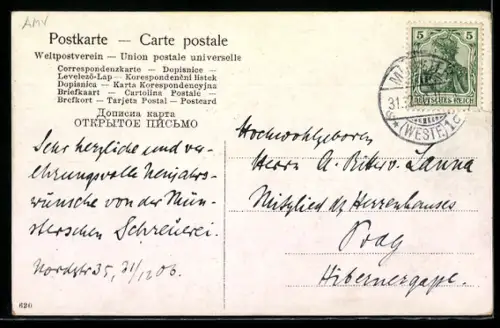 AMV
Postkarte — Carte postale
Weltpostverein — Union postale universelle
Correspondenzkarte — Dopisnice —
Levelező-Lap — Korespondenční lístek
Dopisnica — Karta Korespondencyjna
Briefkaart — Cartolina Postale —
Brefkort — Tarjeta Postal — Postcard
Дописна карта
ОТКРЫТОЕ ПИСЬМО
Sehr herzliche und ver-
ehrungsvolle Neujahrs-
wünsche von der Mün-
sterschen Schreuerei.
Nordstr 35, 31/12 06.
620
5 5
DEUTSCHES REICH
31.
(WESTF.) 1
Hochwohlgeboren
Herrn A. Ritter v. Lanna
Mitglied des Herrenhauses
Prag
Hibernergasse.